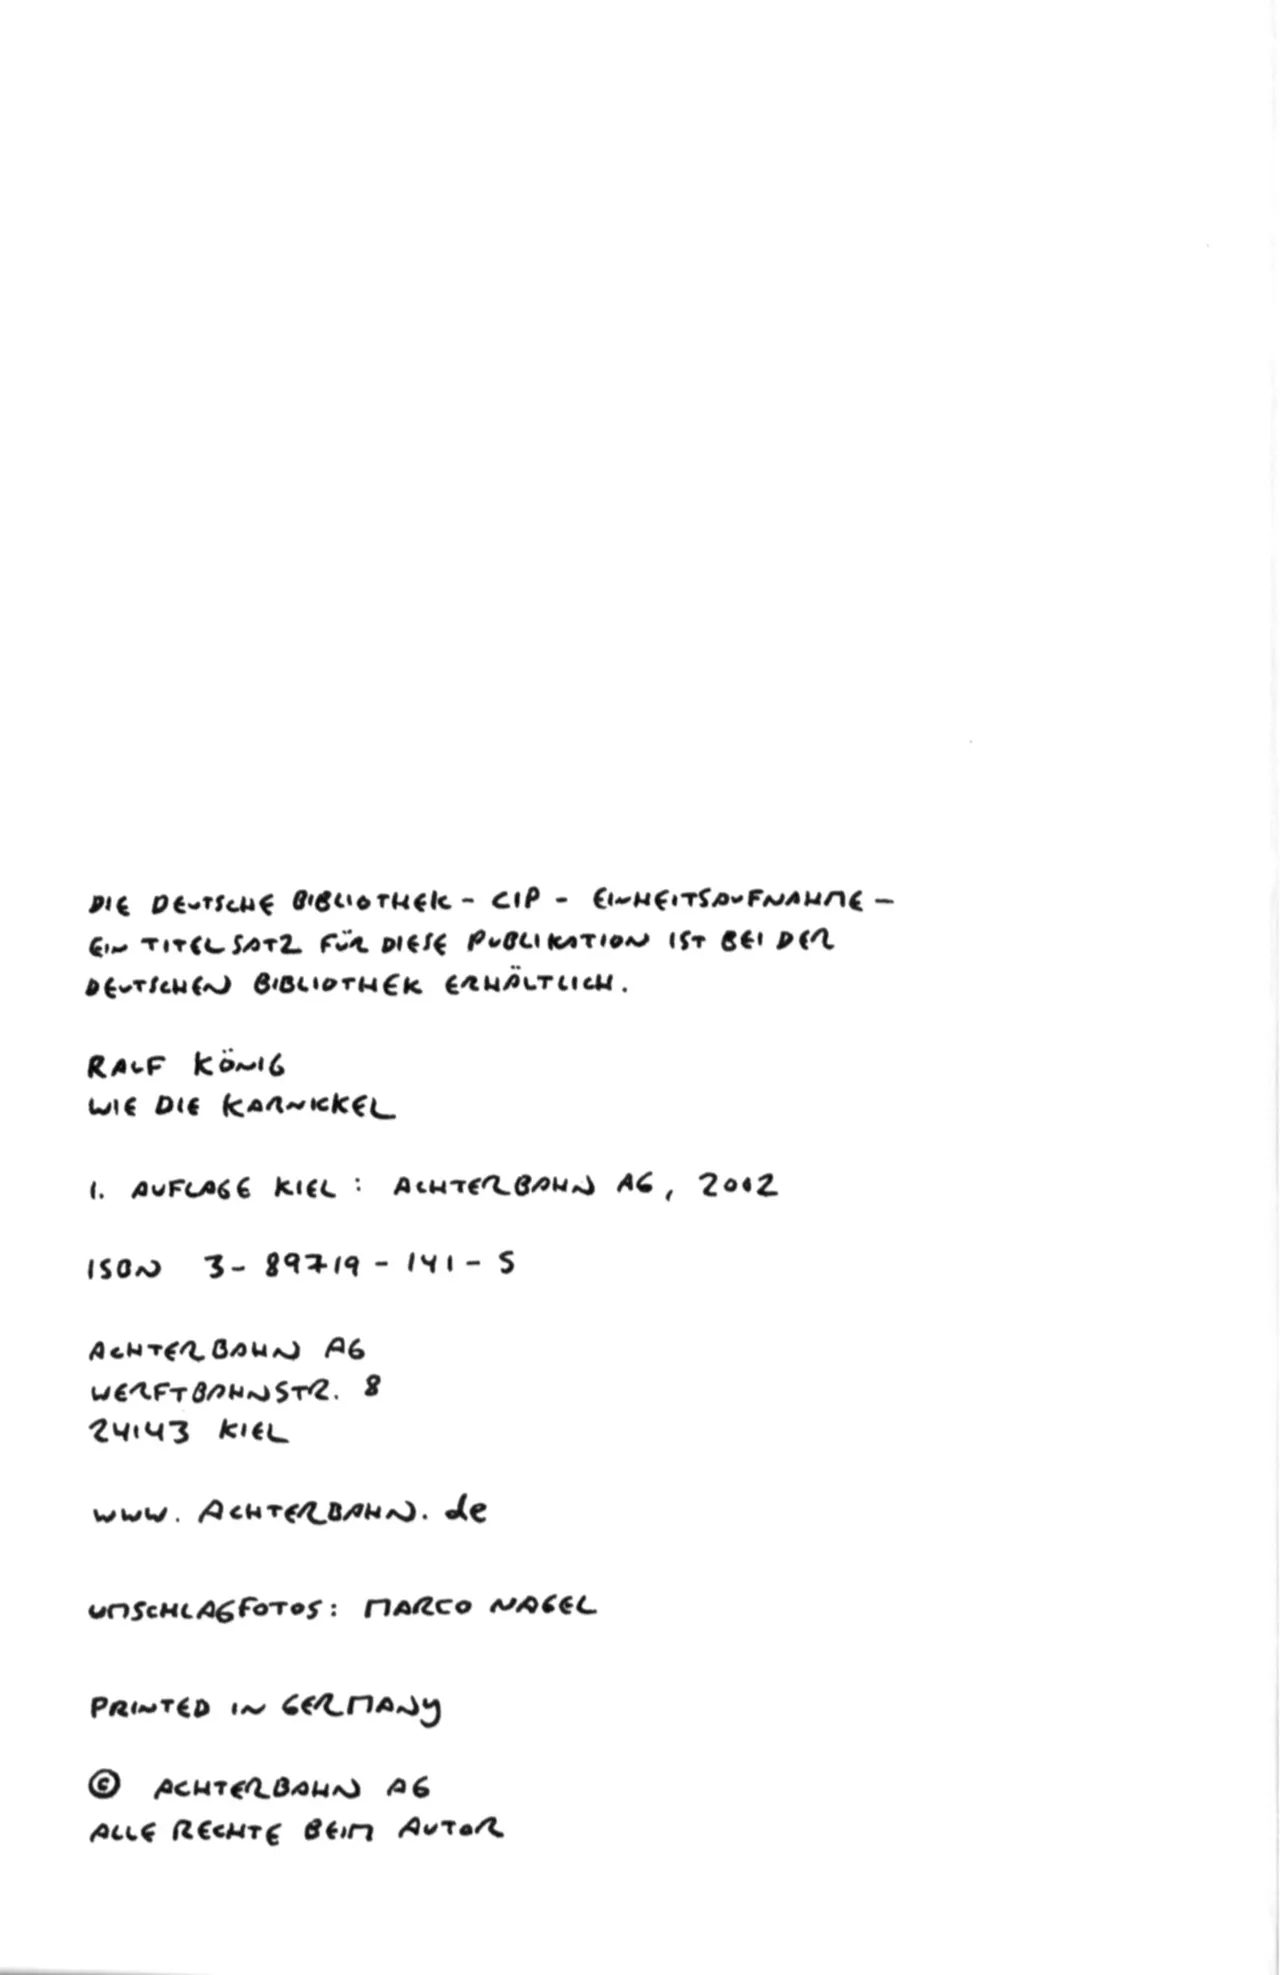 DIE DEUTSCHE BIBLIOTHEK - CIP - EINHEITSAUFNAHME -
EIN TITELSATZ FÜR DIESE PUBLIKATION IST BEI DER
DEUTSCHEN BIBLIOTHEK ERHÄLTLICH.
RALF KÖNIG
WIE DIE KARNICKEL
1. AUFLAGE KIEL: ACHTERBAHN AG, 2002
ISBN 3-89719-141-5
ACHTERBAHN AG
WERFTBAHNSTR. 8
24143 KIEL
www. ACHTERBAHN. de
UMSCHLAGFOTOS: MARCO NAGEL
PRINTED IN GERMANY
© ACHTERBAHN AG
ALLE RECHTE BEIM AUTOR